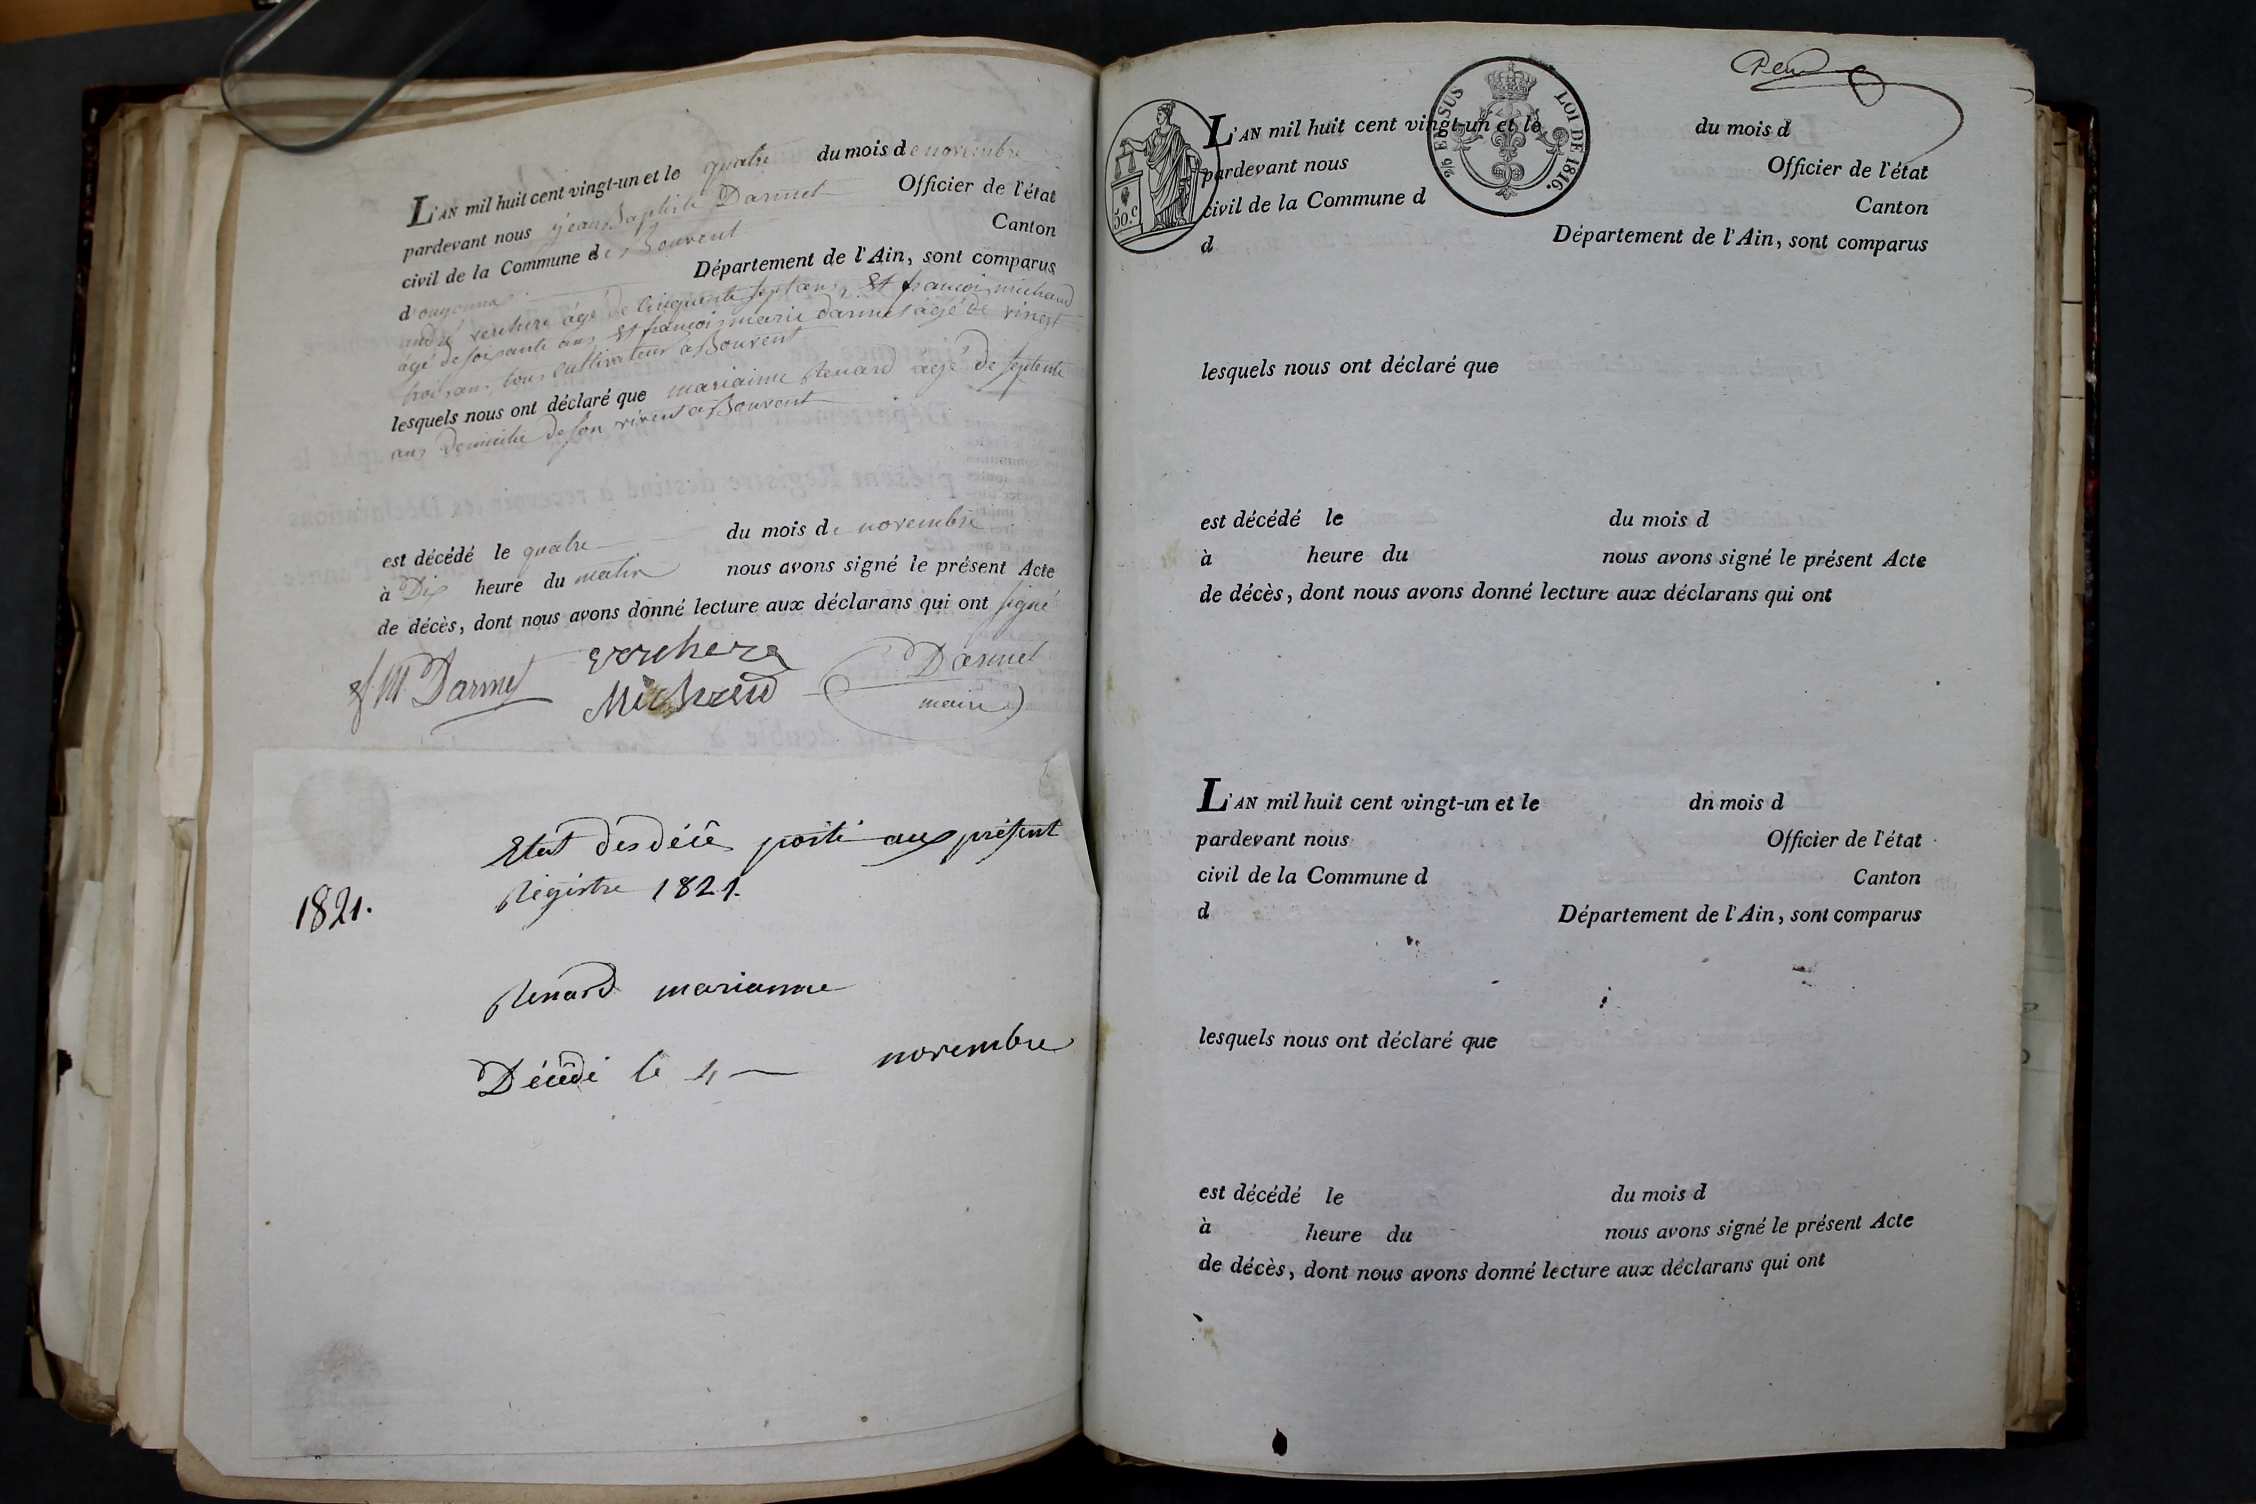 L'AN mil huit cent vingt-un et le quatre du mois de novembre
pardevant nous jean Baptiste Darmet Officier de l'état
civil de la Commune de Bouvent Canton
d'oyonna Département de l'Ain, sont comparus
andré verchere âgé de cinquante sept ans, Et francois michaud
âgé de soisante ans Et françois marie darmet âgé de vingt
trois ans, tous cultivateur a Bouvent
lesquels nous ont déclaré que mariaime Renard agé de septente
ans Domicilié de son vivent a Bouvent
est décédé le quatre du mois de novembre
à Dix heure du matin nous avons signé le présent Acte
de décès, dont nous avons donné lecture aux déclarans qui ont signé
f M Darmet verchere Darmet
Michaud maire
Etat des décê porté aux présent
Régistre 1821.
1821.
Renard marianne
Décédé le 4 novembre
L'AN mil huit cent vingt-un et le du mois d
pardevant nous Officier de l'état
civil de la Commune d Canton
d Département de l'Ain, sont comparus
50.c
2/5 EN SUS LOI DE 1816.
lesquels nous ont déclaré que
est décédé le du mois d
à heure du nous avons signé le présent Acte
de décès, dont nous avons donné lecture aux déclarans qui ont
L'AN mil huit cent vingt-un et le dn mois d
pardevant nous Officier de l'état
civil de la Commune d Canton
d Département de l'Ain, sont comparus
lesquels nous ont déclaré que
est décédé le du mois d
à heure du nous avons signé le présent Acte
de décès, dont nous avons donné lecture aux déclarans qui ont